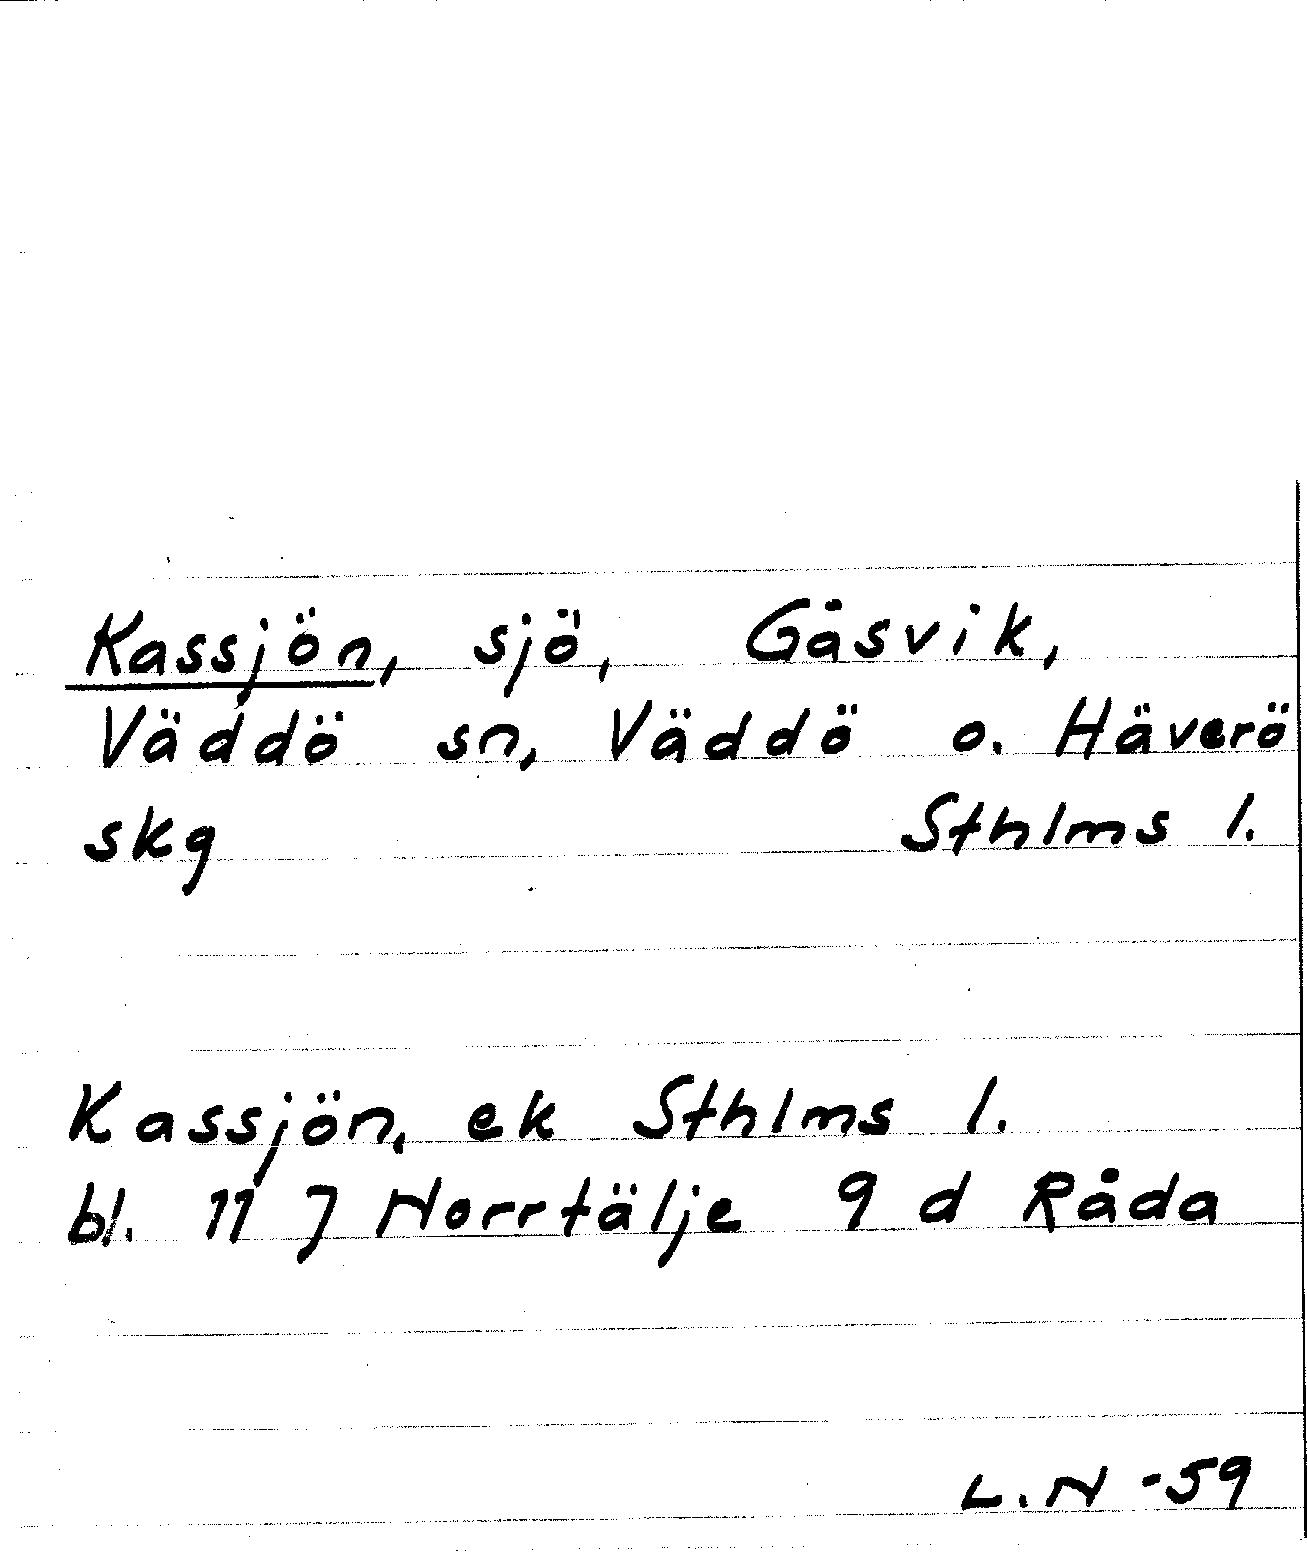 Kassjön, sjö, Gåsvik,
Väddö sn, Väddö o. Häverö
skg Sthlms l.
Kassjön, ek Sthlms l.
bl. 11 J Norrtälje 9 d Råda
L.N -59